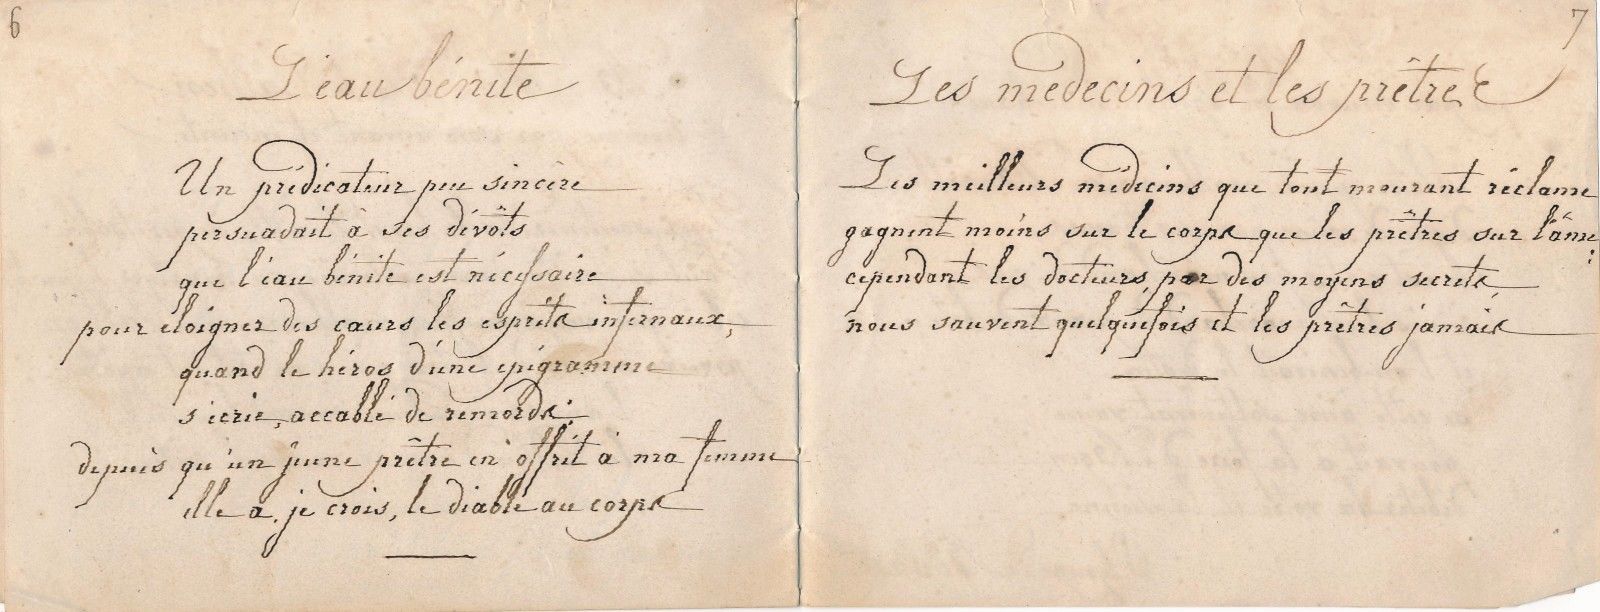 6
L'eau bénite
Un prédicateur peu sincère
persuadait à ses dévôts
que l'eau bénite est nécessaire
pour éloigner des cœurs les esprits infernaux,
quand le héros d'une épigramme
s'écrie, accablé de remords:
depuis qu'un jeune prêtre en offrit à ma femme
elle a, je crois, le diable au corps
7
Les medecins et les prêtres
Les meilleurs médecins que tout mourant réclame
gagnent moins sur le corps que les prêtres sur l'âme:
cependant les docteurs, par des moyens secrets,
nous sauvent quelquefois et les prêtres jamais